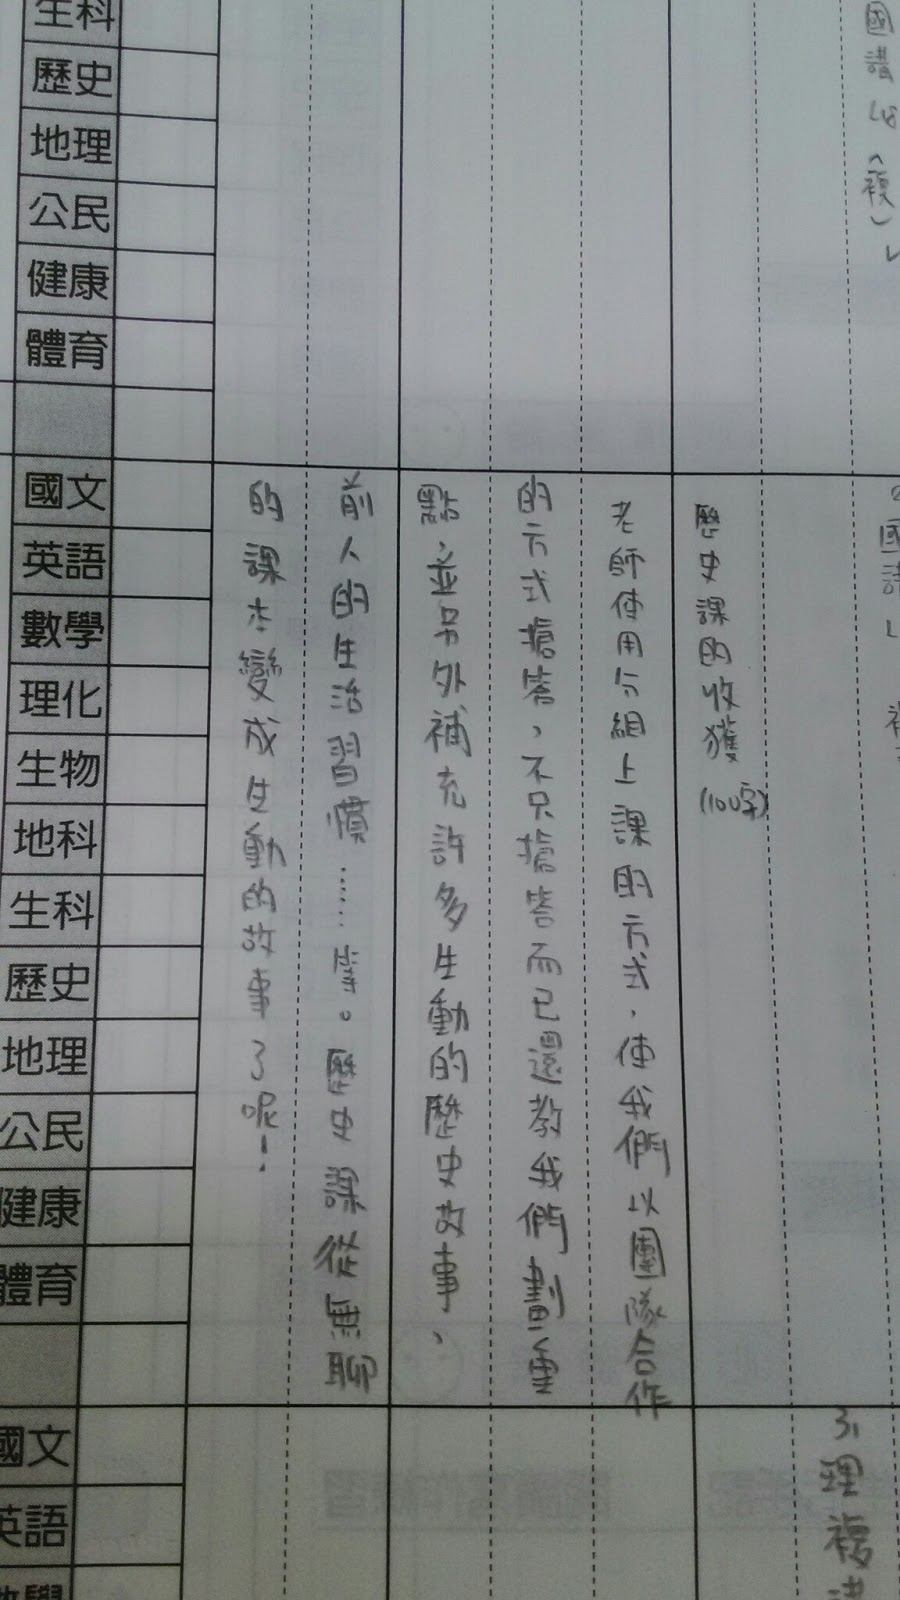 國講L8(複)✓
歷史課的收獲(100字)
老師使用分組上課的方式,使我們以團隊合作
的方式搶答,不只搶答而已還教我們劃重
點,並另外補充許多生動的歷史故事、
前人的生活習慣……等。歷史課從無聊
的課本變成生動的故事了呢!
3,理複講
生科
歷史
地理
公民
健康
體育
國文
英語
數學
理化
生物
地科
生科
歷史
地理
公民
健康
體育
國文
英語
數學